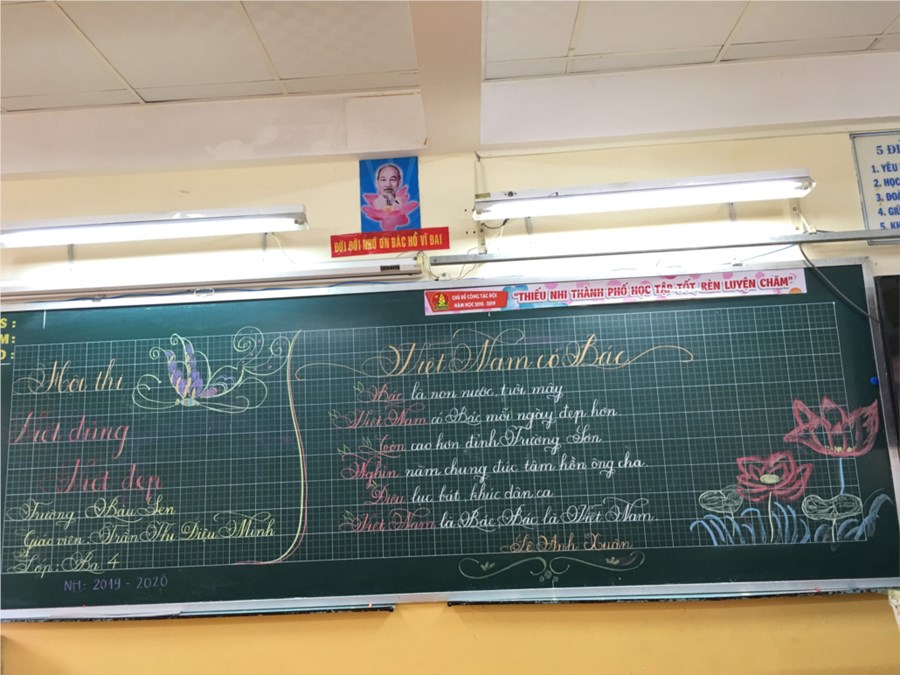 ĐỜI ĐỜI NHỚ ƠN BÁC HỒ VĨ ĐẠI
CHỦ ĐỀ CÔNG TÁC ĐỘI
NĂM HỌC 2018 - 2019
"THIẾU NHI THÀNH PHỐ HỌC TẬP TỐT, RÈN LUYỆN CHĂM"
5 ĐI
1. YÊU
2. HỌC
3. ĐOÀ
4. GIỮ
5. KH
S :
M :
Hội thi
Viết đúng
Viết đẹp
Trường: Bàu Sen
Giáo viên: Trần Thị Diệu Minh
Lớp: Ba 4
NH: 2019 - 2020
Việt Nam có Bác
Bác là non nước, trời mây
Việt Nam có Bác mỗi ngày đẹp hơn
Còn cao hơn đỉnh Trường Sơn
Nghìn năm chung đúc tâm hồn ông cha.
Điệu lục bát, khúc dân ca
Việt Nam là Bác, Bác là Việt Nam.
Lê Anh Xuân